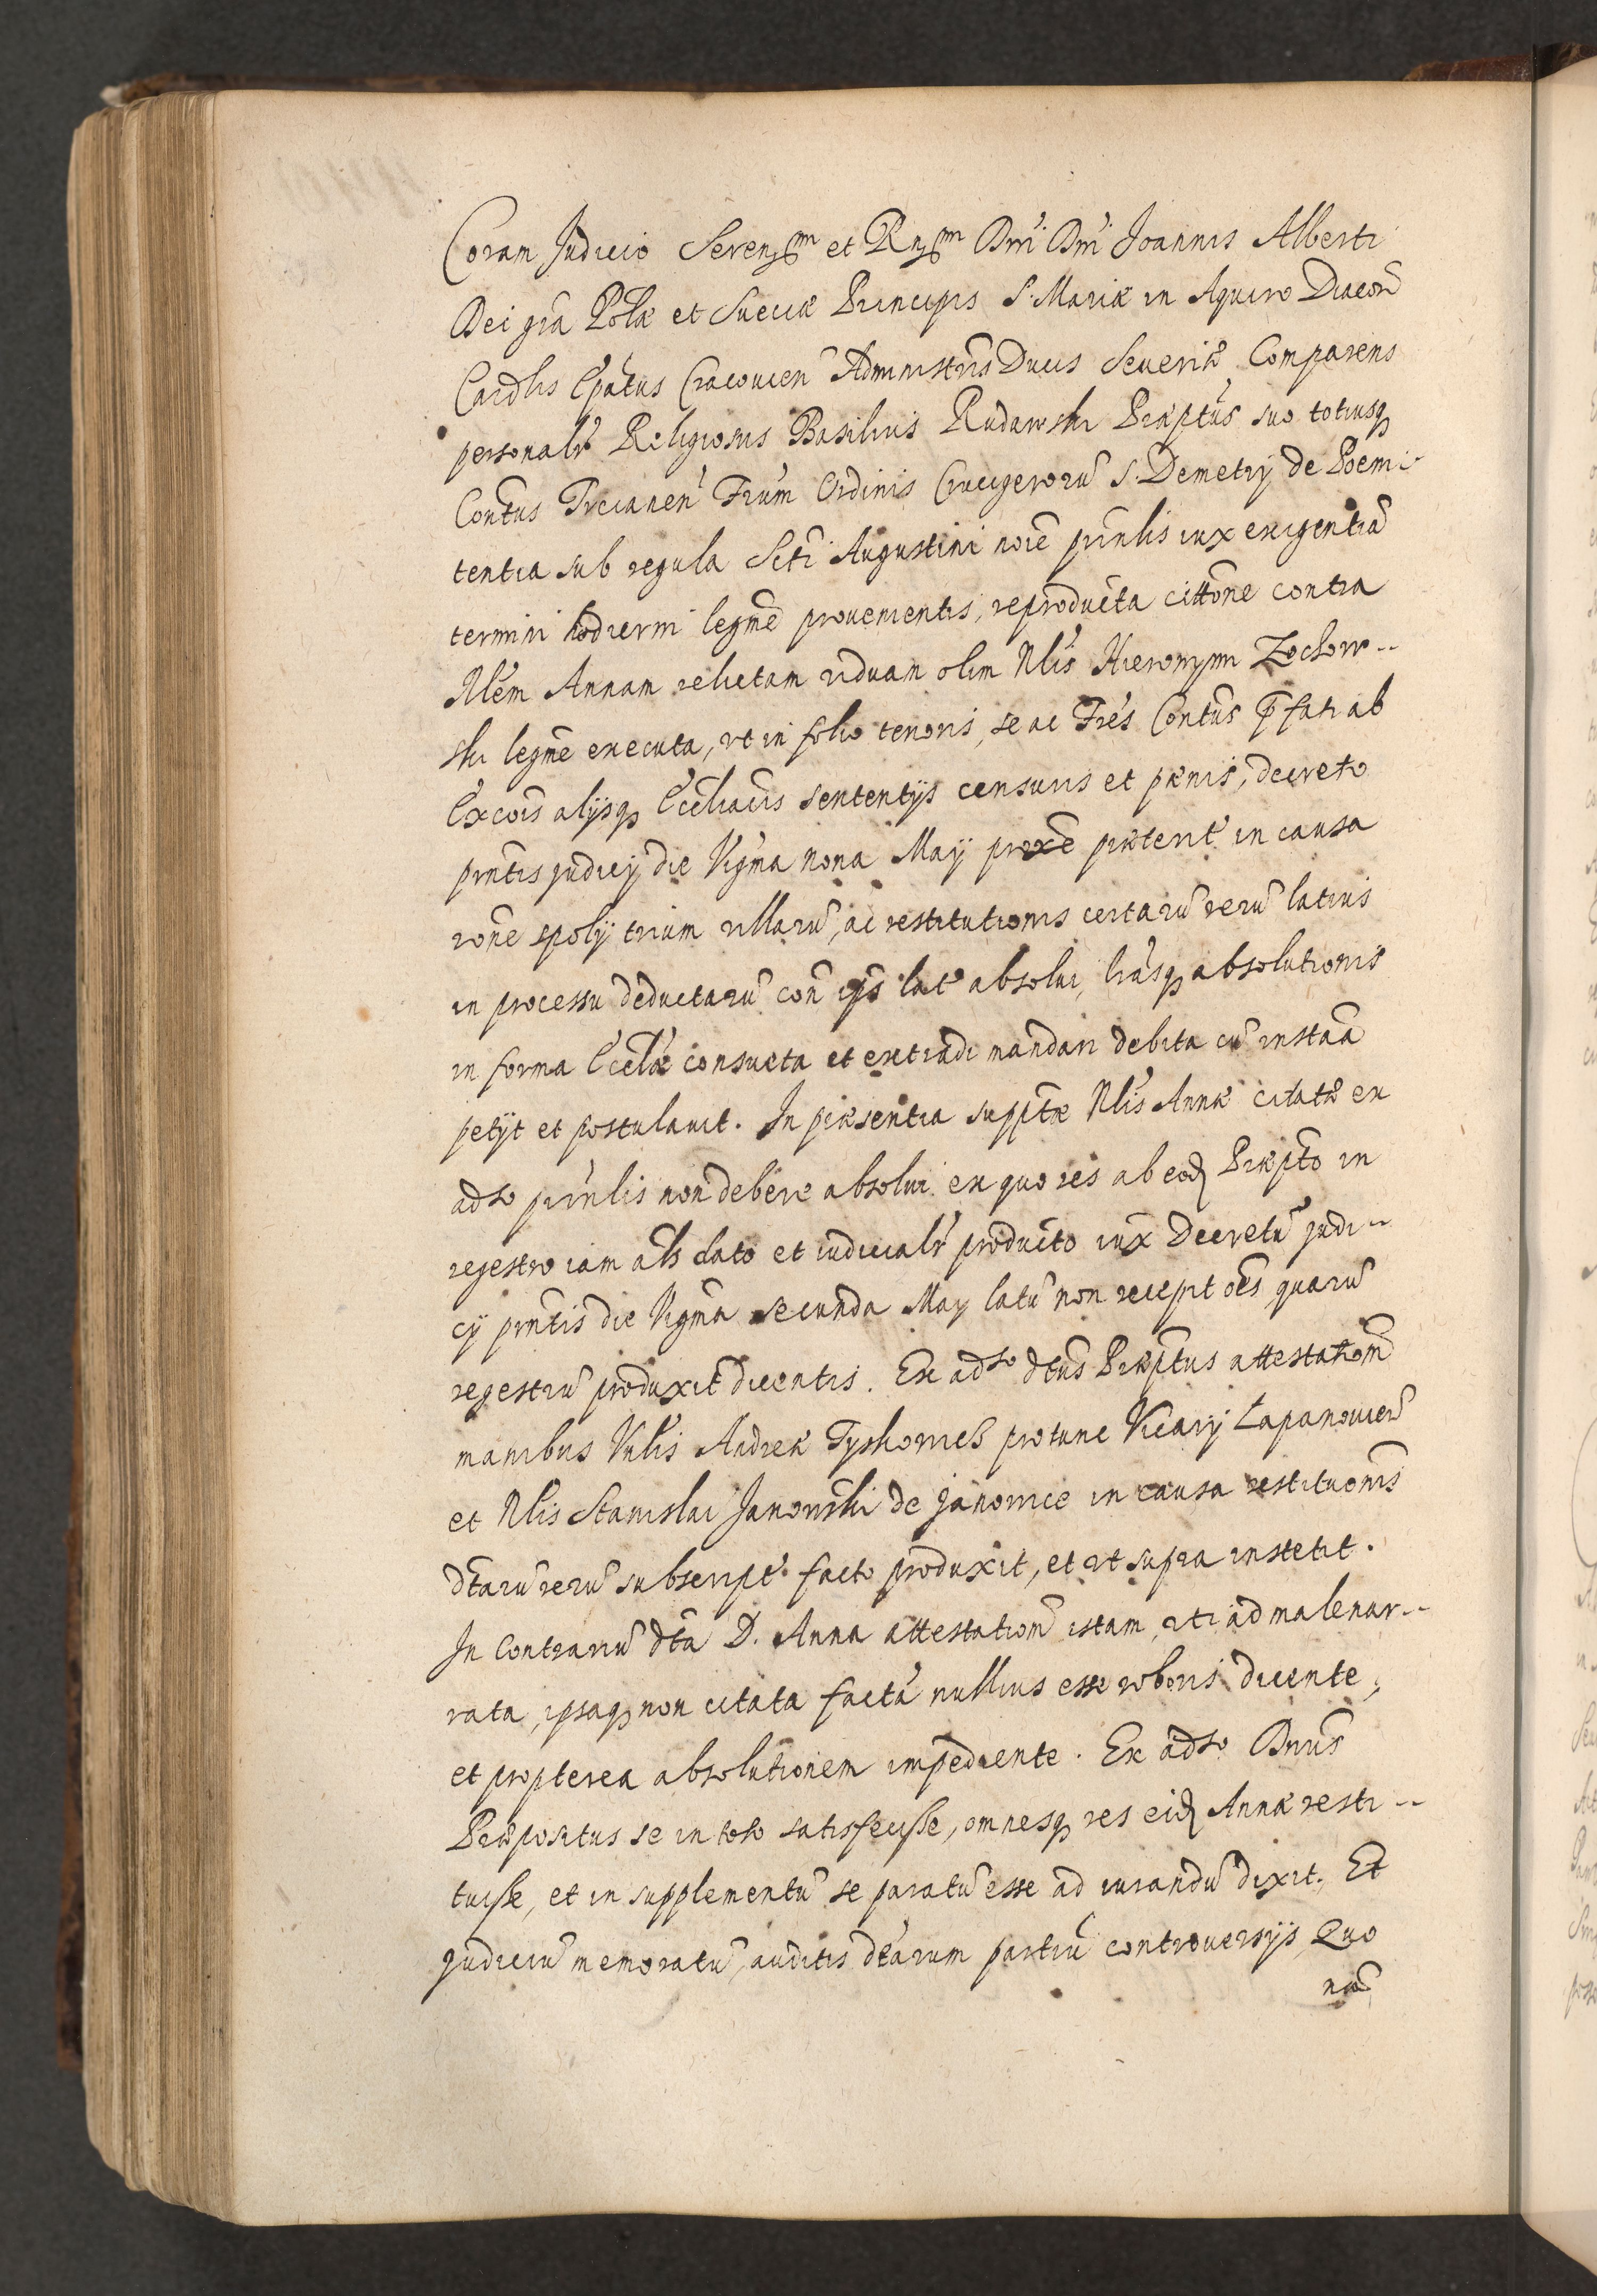 Coram Judicio Serenssm et Rnssm Dnĩ Dnĩ Joannis Alberti
Dei grã Polæ et Sueciæ Principis S. Mariæ in Aquiro Diacoñ
Cardlis Epãtus Cracovien Administrĩs Ducis Severiæ Comparens
personalr Religiosus Basilius Rudawski Præptus suo totiusq
Contus Trcianeñ Frũm Ordinis Crucigerorũ S. Demetrij de Poeni-
tentia sub regula Scti Augustini noĩe prinlis iux exigentiã
termini hodierni legmẽ provenientis, reproducta cittõne contra
Nlem Annam relictam viduam olim Nlis Hieronymi Zochow--
ski legmẽ executa, vt in folio tenoris, se ac Frẽs Contus pfati ab
Excoĩs alijsq Eccliacis sententijs censuris et pænis, decreto
pñtis judicij die Vigma nona Maij proxẽ præterit in causa
rõne spolij trium villarũ, ac restitutionis certarũ rerũ latius
in processu deductarũ con ips lat absolui, lrãsq absolutionis
in forma Ecclæ consueta et extradi mandari debita cũ instaã
petijt et postulavit. In præsentia supptæ Nlis Annæ citatæ ex
adso prinlis non debere absolui ex quo res ab eod Præpto in
regestro iam als dato et iudicialr producto iux Decretũ judi--
cij pñtis die Vigma secunda Maij latũ non recepit oẽs quarũ
regestrũ produxit dicentis. Ex adso dtus Præptus attestationẽ
manibus Vnlis Andreæ Tyskowicz protunc Vicarij Lapanovieñ
et Nlis Stanislai Janowski de Janowice in causa restituonis
dtarũ rerũ subscript facto produxit, et vt supra institit.
In Contrariũ dta D. Anna attestationẽ istam, vti ad malenar--
rata, ipsaq non citata facta nullius esse roboris dicente,
et propterea absolutionem impediente. Ex adso Dnus
Præpositus se in toto satisfecisse, omnesq res eid Annæ resti--
tuisse, et in supplementũ se paratũ esse ad iurandũ dixit. Et
Judiciũ memoratũ, auditis dtarum partiũ controversijs, Quo
niã